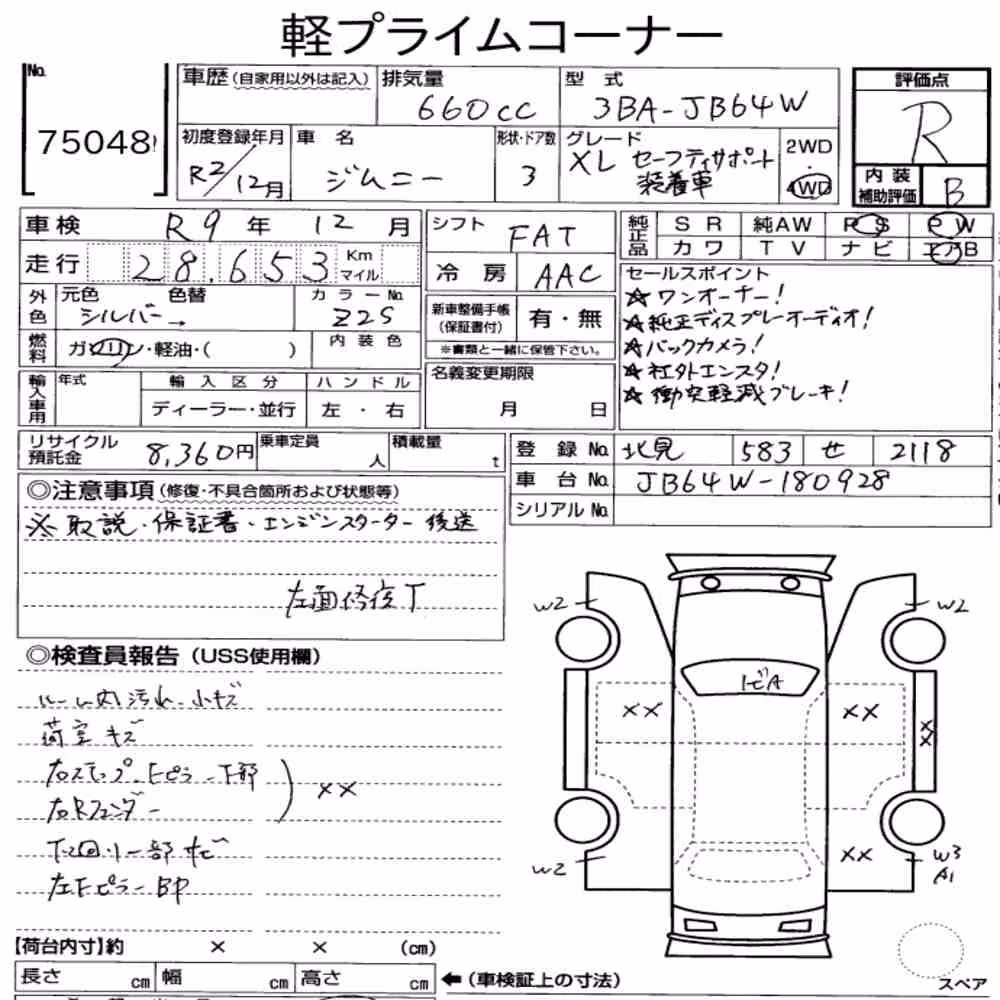 軽プライムコーナー
No.
75048
車歴(自家用以外は記入)
排気量
660cc
型式
3BA-JB64W
評価点
R
初度登録年月
R2/12月
車名
ジムニー
形状・ドア数
3
グレード
XL セーフティサポート
装着車
2WD
・
4WD
内装
補助評価
B
車検 R9年 12月
走行 28,653 Km
マイル
外色
元色 色替
シルバー→
カラーNo.
Z2S
燃料
ガソリン・軽油・( )
内装色
輸入車用
年式
輸入区分
ディーラー・並行
ハンドル
左・右
シフト
FAT
冷房
AAC
新車整備手帳
(保証書付)
有・無
※書類と一緒に保管下さい。
名義変更期限
月 日
純正品
SR 純AW PS PW
カワ TV ナビ エアB
セールスポイント
☆ワンオーナー!
☆純正ディスプレーオーディオ!
☆バックカメラ!
☆社外エンスタ!
☆衝突軽減ブレーキ!
リサイクル
預託金
8,360円
乗車定員
人
積載量
t
登録No. 北見 583 せ 2118
車台No. JB64W-180928
シリアルNo.
◎注意事項(修復・不具合箇所および状態等)
※取説・保証書・エンジンスターター後送
左面修復T
◎検査員報告(USS使用欄)
ルーム内汚れ・小キズ
荷室キズ
右ステップ、Fピラー下部
右Rフェンダー
) ××
下回り一部サビ
左Fピラー BP
W2
W2
トビA
××
××
××
W2
××
W3
A1
スペア
【荷台内寸】約 × × (cm)
長さ cm 幅 cm 高さ cm
←(車検証上の寸法)